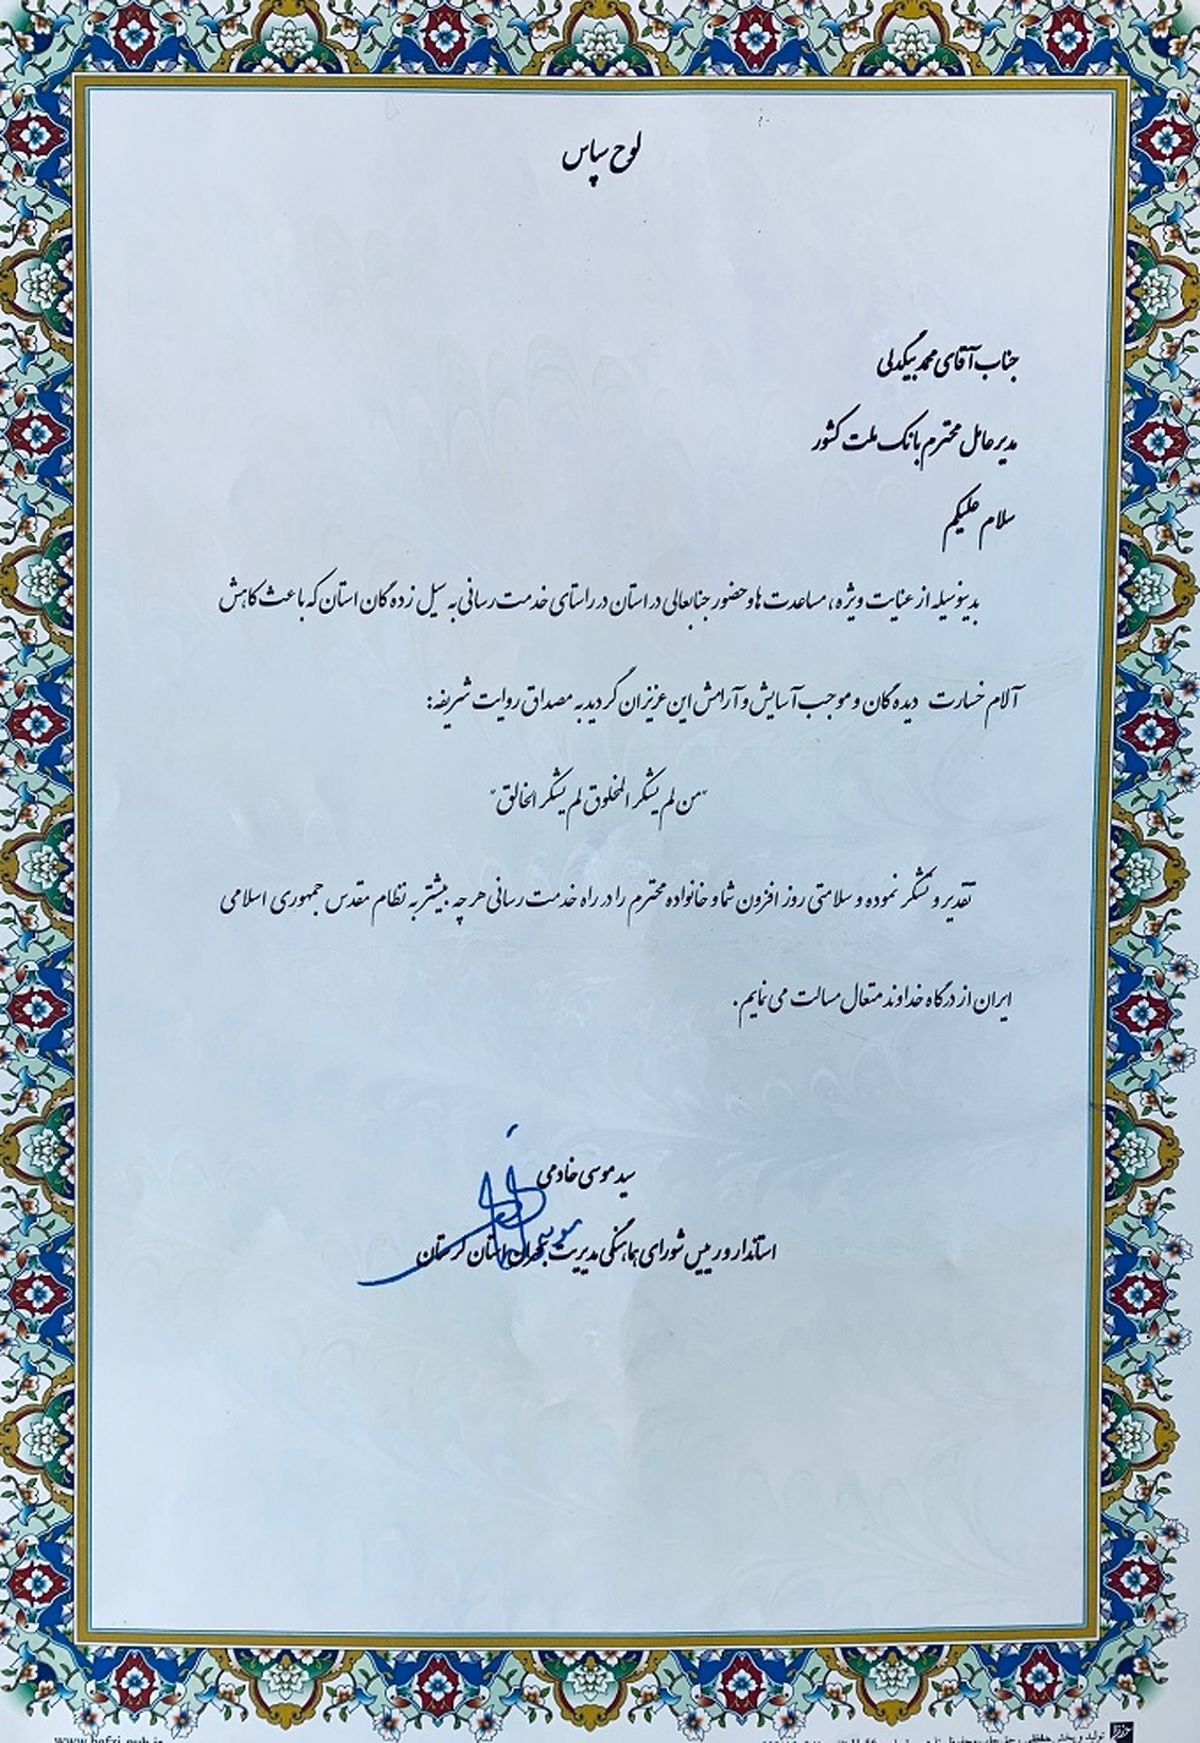 لوح سپاس
جناب آقای محمد بیگدلی
مدیرعامل محترم بانک ملت کشور
سلام علیکم
بدینوسیله از عنایت ویژه، مساعدت ها و حضور جنابعالی در استان در راستای خدمت رسانی به سیل زده گان استان که باعث کاهش
آلام خسارت دیده گان و موجب آسایش و آرامش این عزیزان گردید به مصداق روایت شریفه:
"من لم یشکر المخلوق لم یشکر الخالق"
تقدیر و تشکر نموده و سلامتی روز افزون شما و خانواده محترم را در راه خدمت رسانی هر چه بیشتر به نظام مقدس جمهوری اسلامی
ایران از درگاه خداوند متعال مسالت می نمایم.
سید موسی خادمی
استاندار و رییس شورای هماهنگی مدیریت بحران استان لرستان